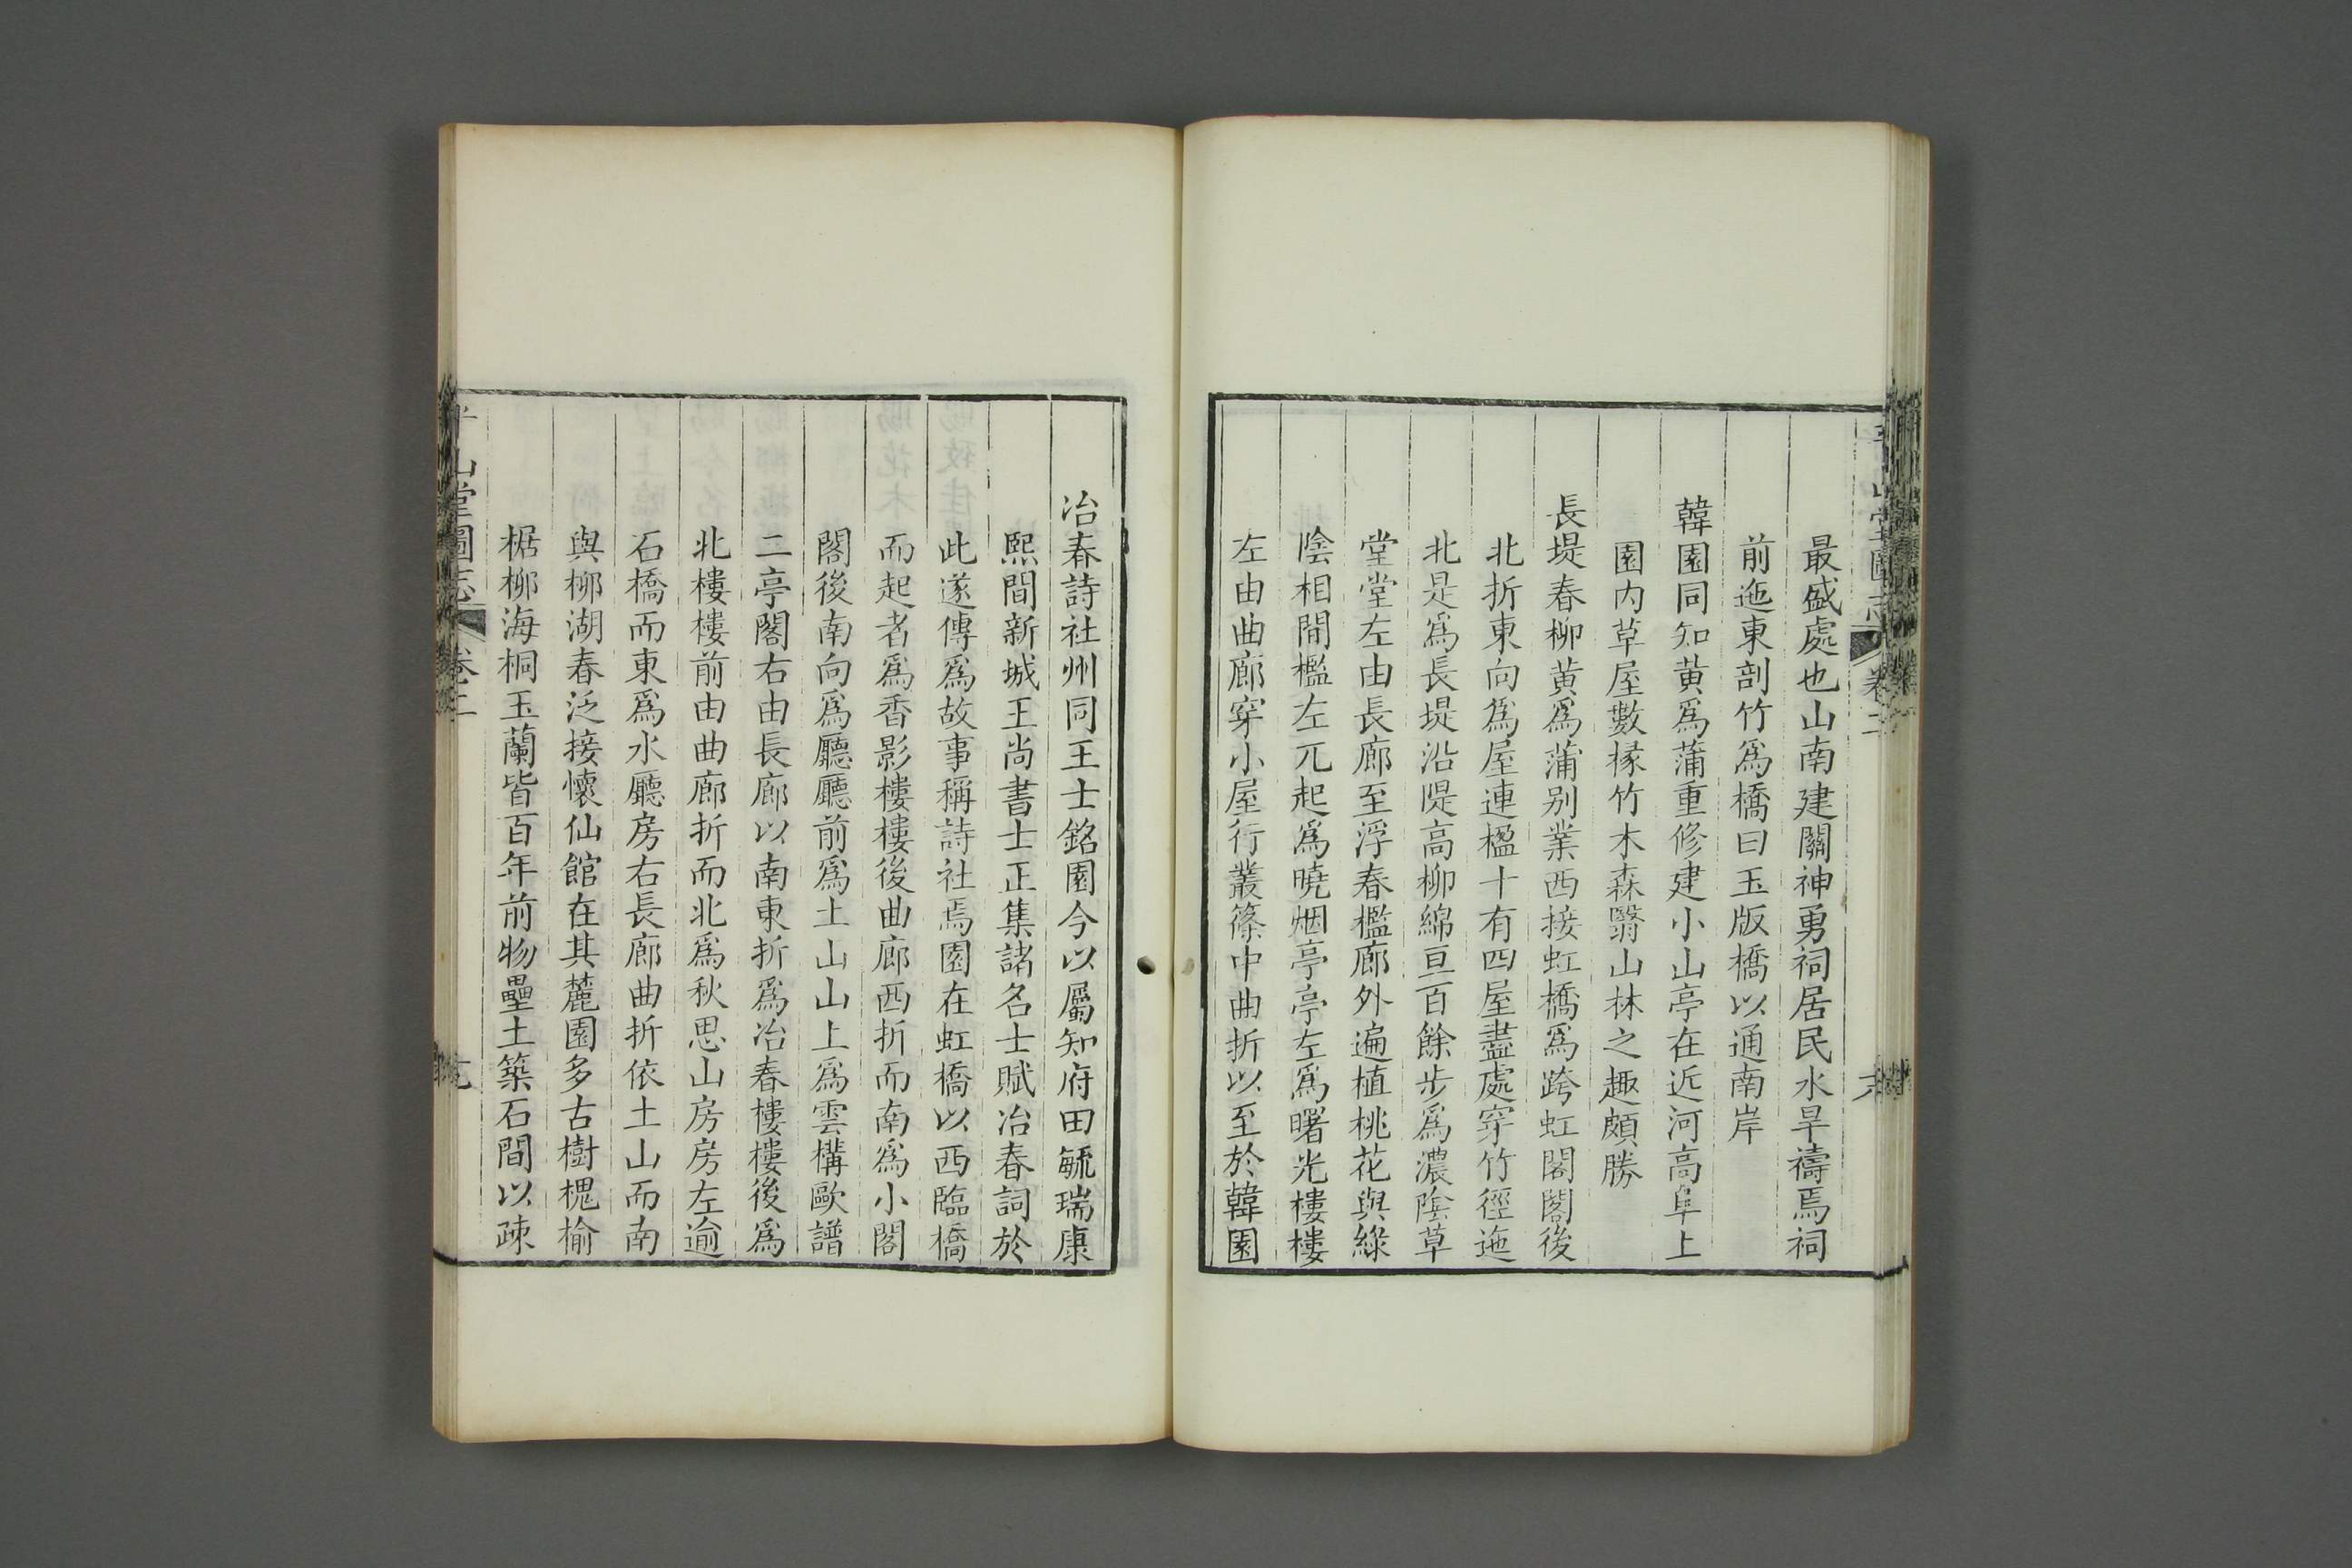 最盛處也山南建關神勇祠居民水旱禱焉祠
前迤東剖竹爲橋曰玉版橋以通南岸
韓園同知黃爲蒲重修建小山亭在近河高阜上
園内草屋數椽竹木森翳山林之趣頗勝
長堤春柳黃爲蒲别業西接虹橋爲跨虹閣閣後
北折東向爲屋連楹十有四屋盡處穿竹徑迤
北是爲長堤沿隄高柳綿亘百餘步爲濃陰草
堂堂左由長廊至浮春檻廊外遍植桃花與綠
陰相間檻左兀起爲曉烟亭亭左爲曙光樓樓
左由曲廊穿小屋行叢篠中曲折以至於韓園
平山堂圖志 卷二
冶春詩社州同王士銘園今以屬知府田毓瑞康
熙間新城王尚書士正集諸名士賦冶春詞於
此遂傳爲故事稱詩社焉園在虹橋以西臨橋
而起者爲香影樓樓後曲廊西折而南爲小閣
閣後南向爲廳廳前爲土山山上爲雲構歐譜
二亭閣右由長廊以南東折爲冶春樓樓後爲
北樓樓前由曲廊折而北爲秋思山房房左逾
石橋而東爲水廳房右長廊曲折依土山而南
與柳湖春泛接懷仙館在其麓園多古樹槐榆
椐柳海桐玉蘭皆百年前物壘土築石間以疎
平山堂圖志 卷二